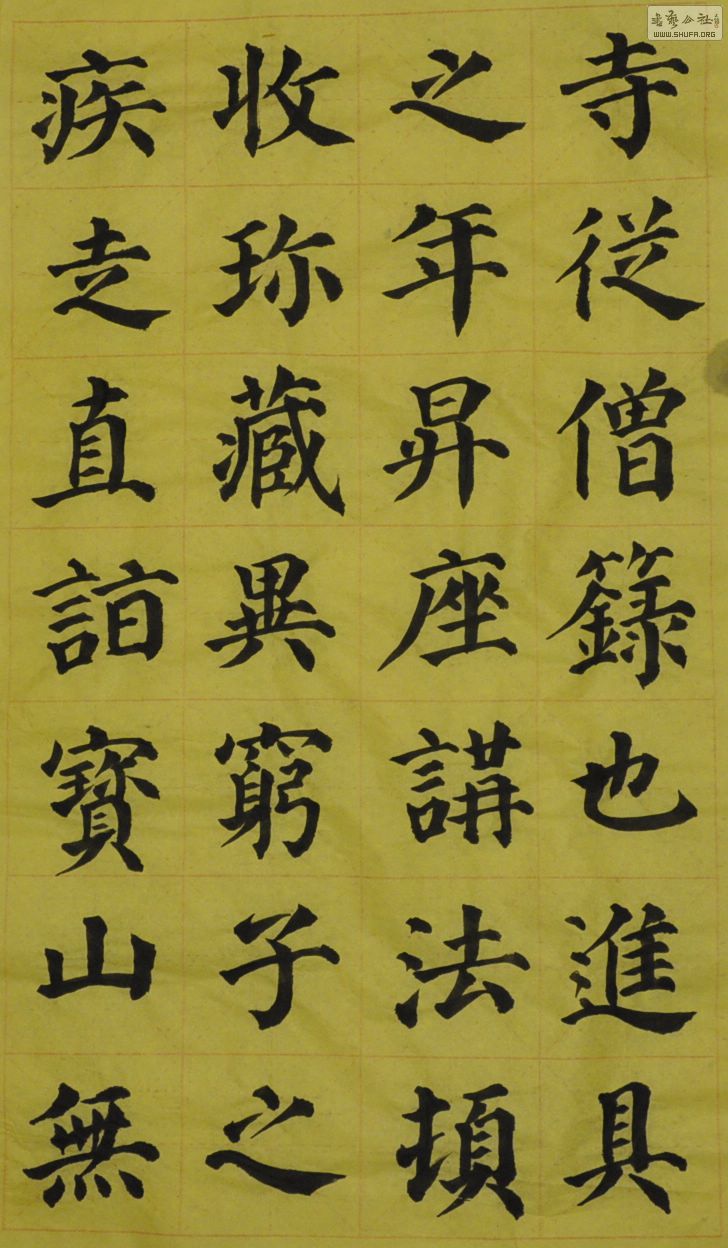 書藝公社
WWW.SHUFA.ORG
寺従僧籙也進具
之年昇座講法頓
收珎藏異窮子之
疾走直詣寶山無